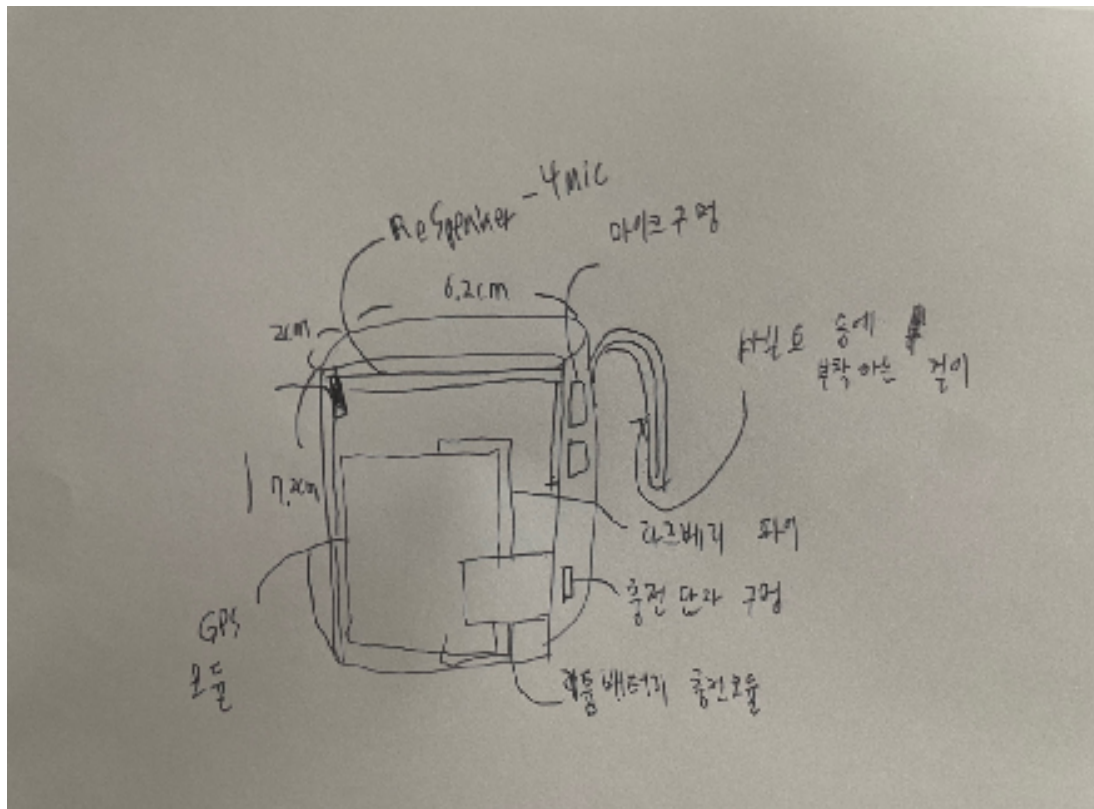 ReSpeaker - 4mic
마이크 구멍
6.2cm
2cm
부착하는 걸이
7.2cm
라즈베리 파이
충전 단자 구멍
GPS
모듈
리튬배터리 충전모듈